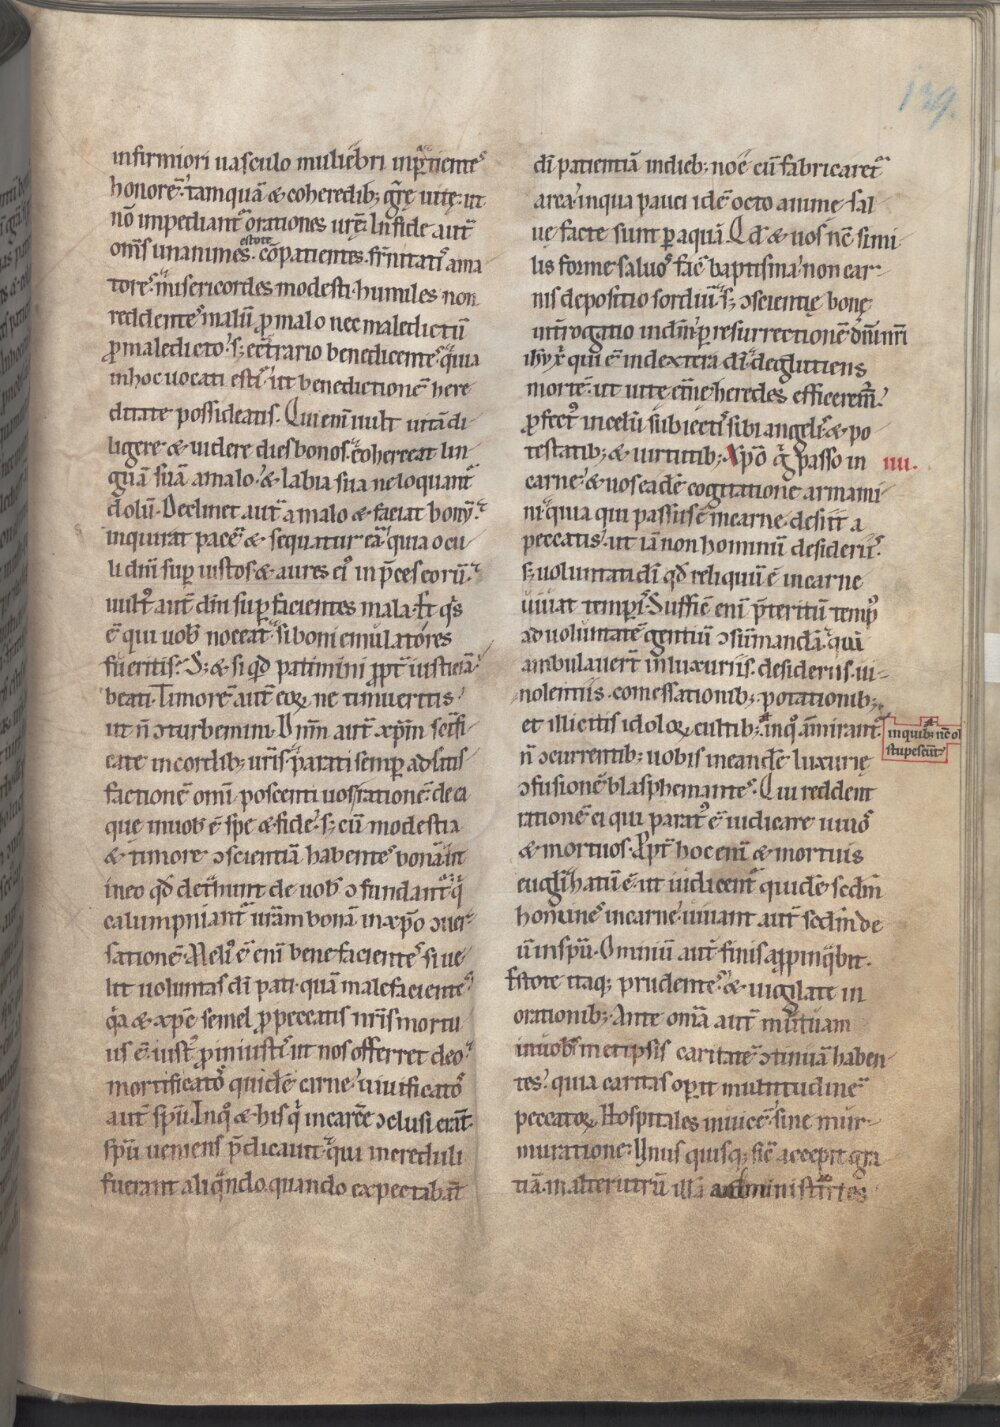 infirmiori uasculo muliebri inp̄tientes
honorē. tamquā & coheredib; gr̄e uitę. ut
nō impediant᷑ orationes urę̄. In fide aut̄
om̄s unanimes estote. cōpatientes. fr̄nitatis ama
tores. misericordes modesti. humiles. non
reddentes malū ꝓ malo nec maledictū
ꝓ maledicto. s; ecōtrario benedicentes. quia
in hoc uocati estis. ut benedictionē here
ditate possideatis. Qui enī uult uitā di
ligere & uidere dies bonos. cohereeat lin
guā suā a malo. & labia sua ne loquant᷑
dolū. Declinet aut̄ a malo & faciat bonū.
inquirat pacē & sequatur eā. quia ocu
li dn̄i sup iustos & aures eiꝰ in p̄ces eorū.
uultꝰ aut̄ dn̄i sup facientes mala. Et q̇s
ē qui uob̄ noceat. si boni emulatores
fueritis. S; & si qd̄ patimini ꝓpt̄ iusticiā.
beati. Timorē aut̄ eoꝝ ne timueritis.
ut n̄ ↄturbemini. Dnm̄ aut̄ xp̄m sc̄ifi
cate in cordib; uris̄. parati semp ad satis
factionē omī poscenti uos rationē. de ea
que in uob̄ ē spe & fide. s; cū modestia
& timore ↄscientiā habentes bonā. ut
in eo qd̄ det᷑hunt de uob̄ ↄfundant᷑ q̇
calumpniant᷑ urām bonā in xp̄o ↄuer
sationē. Meliꝰ ē enī bene facientes si ue
lit uoluntas dī pati. quā malefacientes
q̇a & xp̄c semel ꝓ peccatis nris̄ mortu
us ē. iustꝰ ꝓ iniustis. ut nos offerret deo.
mortificatos quidē carne. uiuificatos
aut̄ spū. In qͦ & his q̇ in carcē ↄclusi erāt.
spū ueniens p̄dicauit. qui increduli
fuerant aliq̄ndo. quando expectabāt
dī patientiā in dieb; noe cū fabricaret᷑
arca. in qua pauci id ē octo anime sal
ue facte sunt p aquā. Qd̄ & uos nc̄ simi
lis forme saluos fac̄ baptisma. non car
nis depositio sordiū. s; ↄscientię bonę
int̄rogatio in dm̄ p resurrectionē dn̄i nr̄i
ihu xp̄i qui ē in dextera dī. deglutiens
mortē. ut uite et̄ne heredes efficeremr̄.
ꝓfectꝰ in celū subiectis sibi angelis & po
testatib; & uirtutib;. Xp̄o igͥ passo in
carne. & uos eadē cogitatione armami
ni. quia qui passus ē in carne. desiit a
peccatis. ut iā non hominū desideriis.
s; uoluntati dī qd̄ reliquū ē in carne
uiuat temporis. Suffic̄ enī p̄teritū tempꝰ
ad uoluntatē gentiū ↄsūmandā. qui
ambulauer̄t in luxuriis. desideriis. ui
nolentiis. comessationib;. potationib;.
et illicitis idoloꝝ cultib;. in qͦ am̄irant᷑
n̄ ↄcurrentib; uobis in eandē luxurię
ↄfusionē blasphemantes. Qui reddent
rationē ei qui paratꝰ ē iudicare uiuos
& mortuos. Ꝓpt̄ hoc enī & mortuis
eugl̄izatū ē. ut iudicent᷑ quidē scd̄m
homines in carne. uiuant aut̄ scd̄m de
ū in spū. Omniū aut̄ finis apꝓpinq̇bit.
Estote itaq; prudentes. & uigilate in
orationib;. Ante omīa aut̄ mutuam
in uob̄ metipsis caritatē ↄtinuā haben
tes. quia caritas opit multitudinē
peccatoꝝ. Hospitales inuicē. sine mur
muratione. Unus quisq; sic̄ accepit gra
tiā. in alterutrū illā administrātes
iiii.
in quib; nc̄ ob
stupescūt